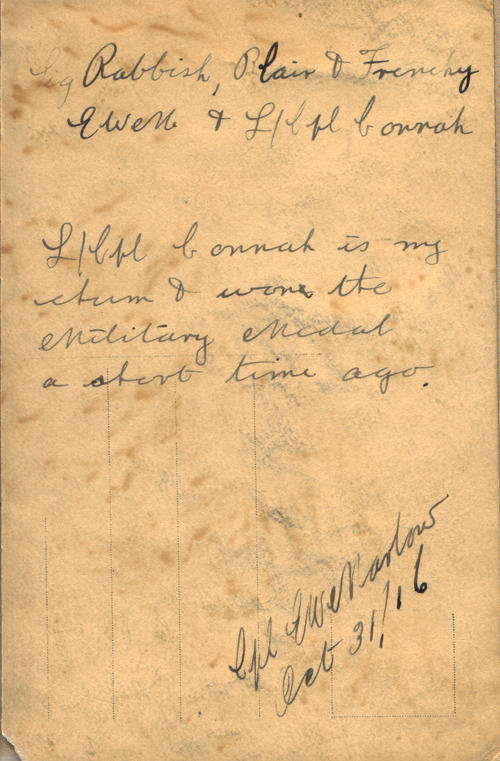 Sig Rabbish, Blair & Frenchy
Ewell & L/Cpl Connah
L/Cpl Connah is my
chum & won the
Military Medal
a short time ago.
Cpl
Oct 31/16